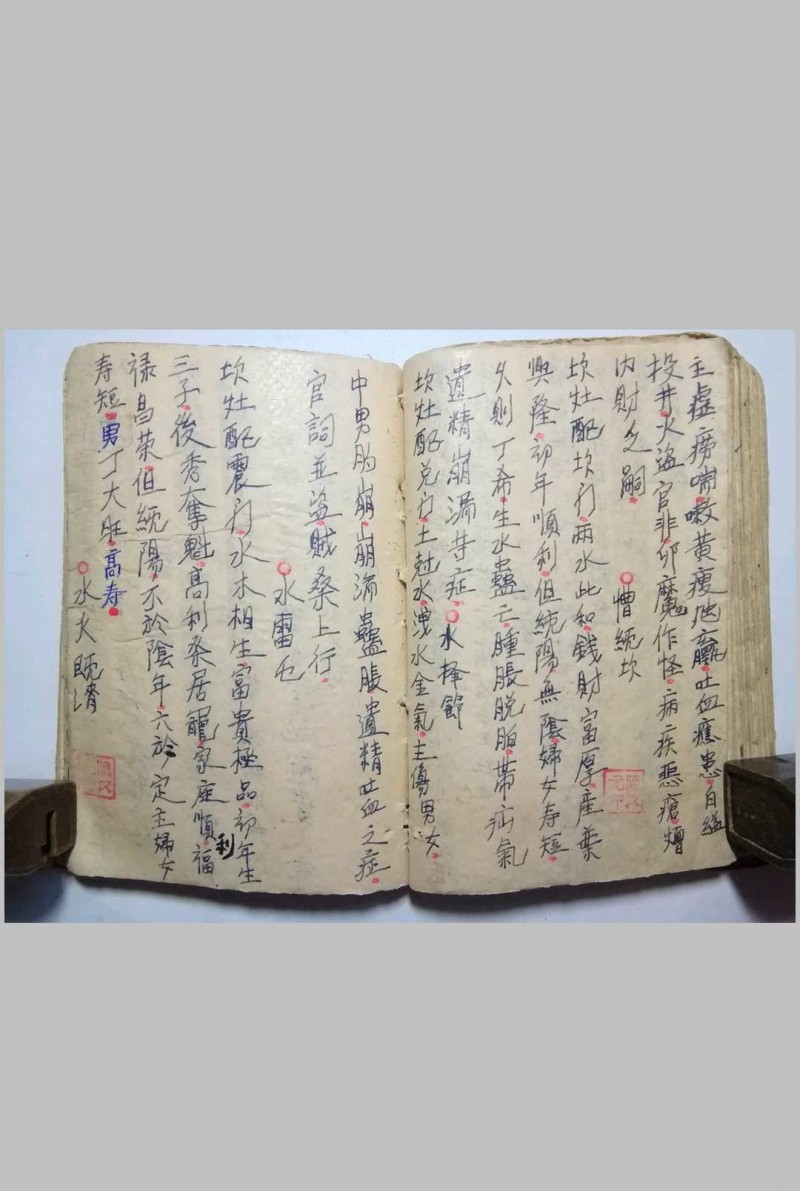 主虚癆喘嗽黄瘦尫羸吐血癮患自縊
投井火盗官非邪魔作怪病疾惡瘡
内財乏嗣 純坎
坎灶配坎门两水比和錢財富厚産業
興隆初年順利但純陽無陰婦女寿短
久則丁希生水蠱亡腫脹脱胎帯疝氣
遺精崩漏等症水择節
坎灶配兑门土尅水洩水金氣主傷男女
中男胎崩崩漏蠱脹遺精吐血之症
官詞並盗賊桑上行
水雷屯
坎灶配震门水木相生富貴極品初年生
三子後秀奪魁高利桑居家庭順利福
禄昌荣但純陽不於陰年六於定主婦女
寿短男丁大旺高寿
水火既济